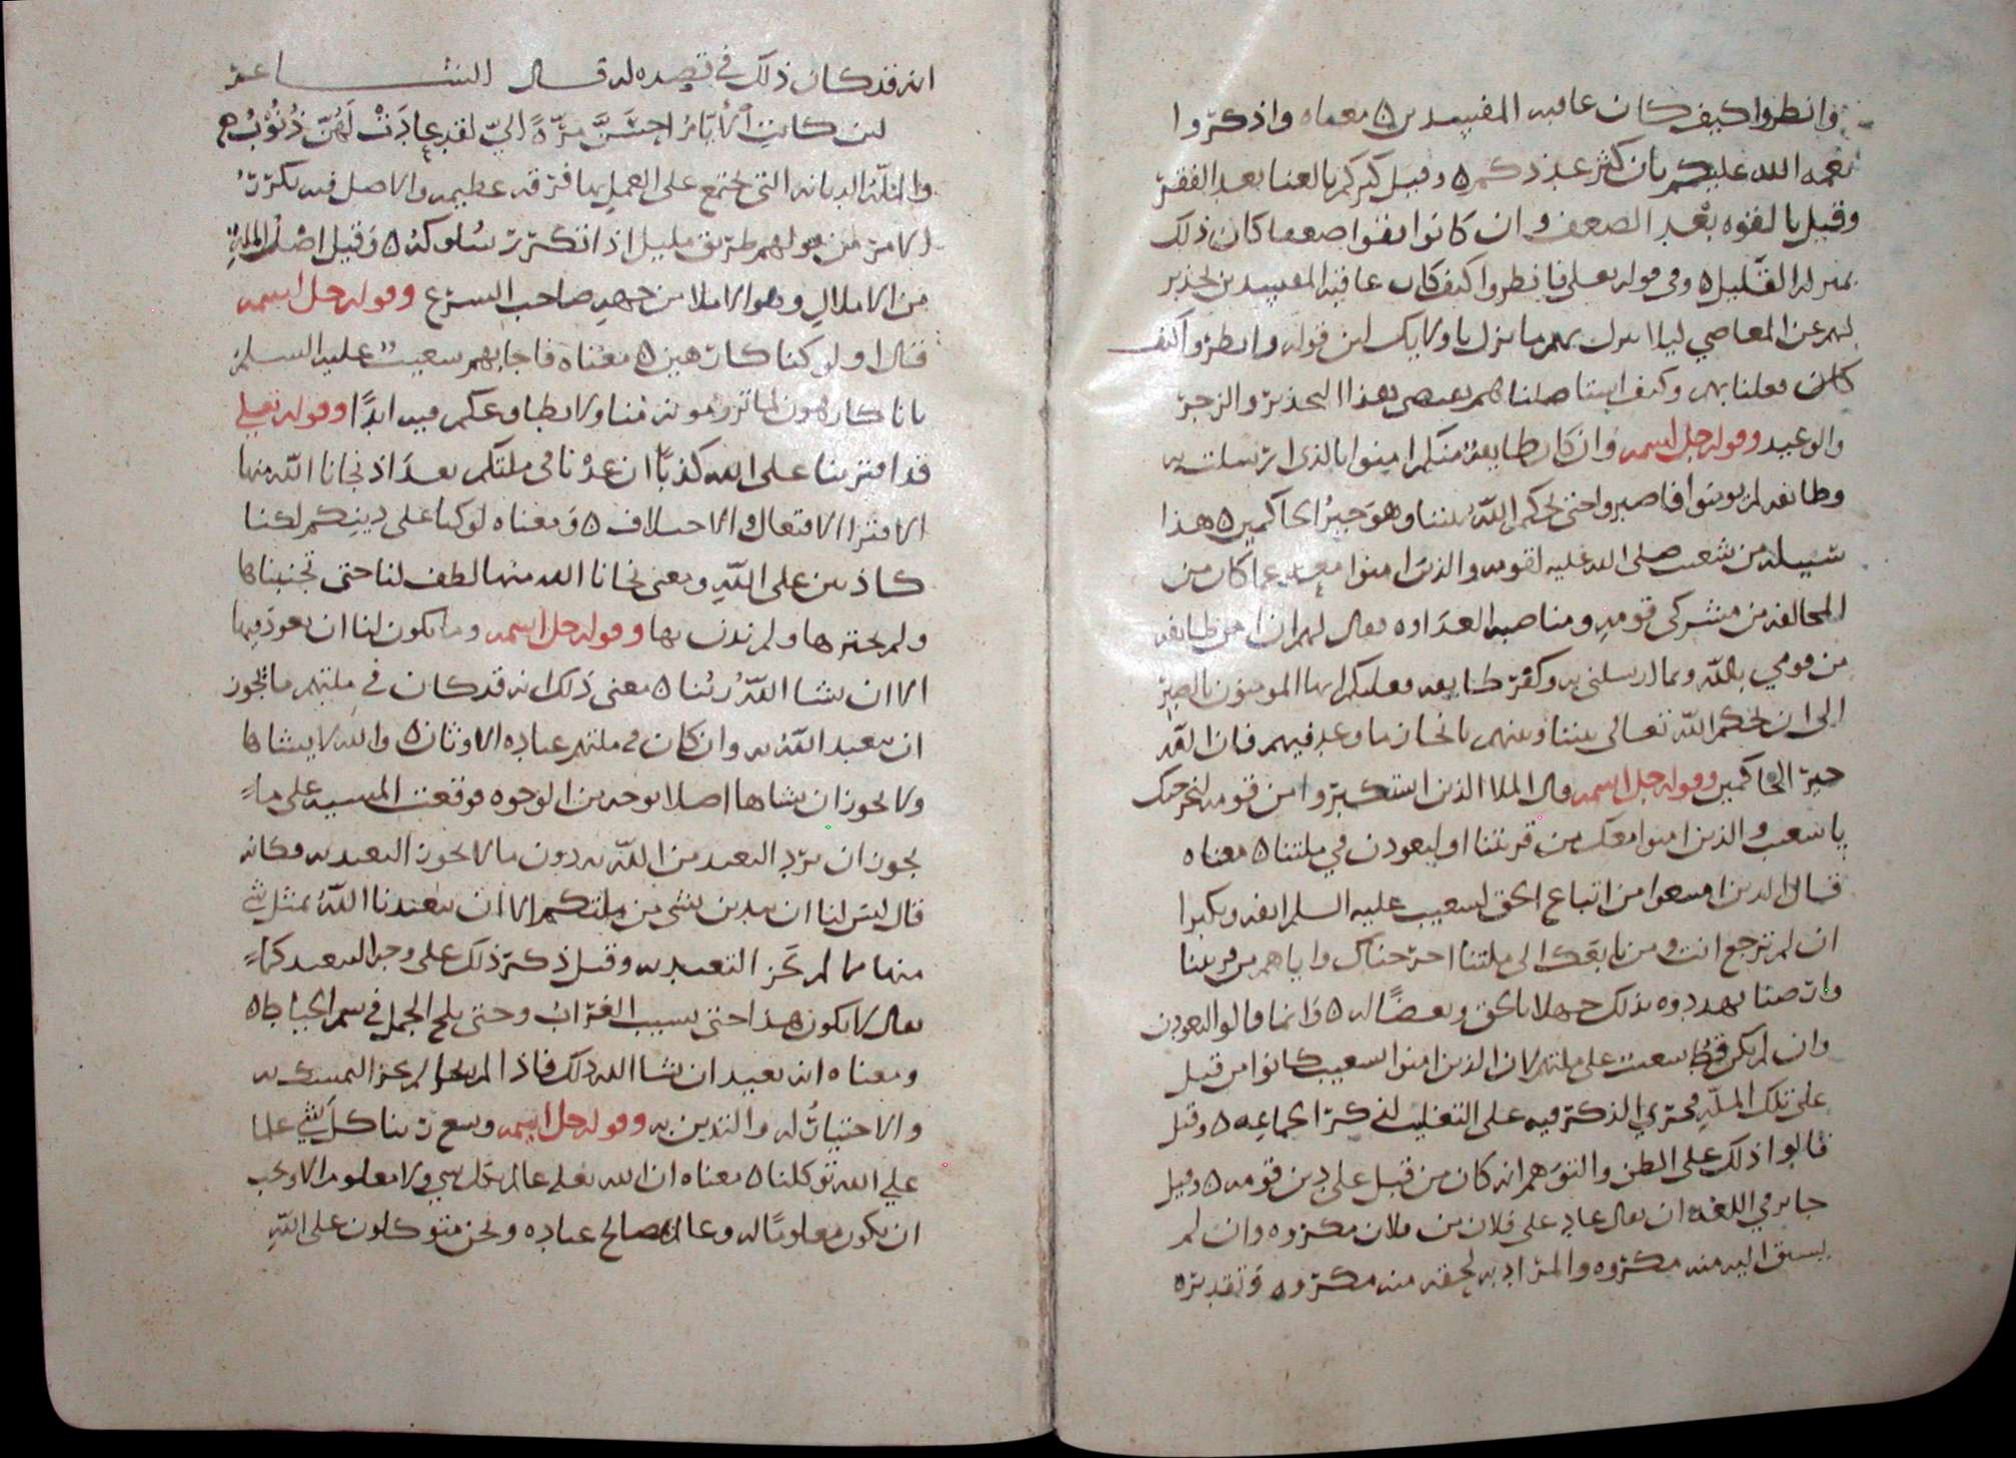 وانظروا كيف كان عاقبه المفسدين ه معناه واذكروا
نعمه الله عليكم بان كثر عددكم ه وقيل كثركم بالغنا بعد الفقر
وقيل بالقوه بعد الضعف وان كانوا بقوا ضعفا كان ذلك
بمنزله القليل ه وفي قوله تعلى فانظروا كيف كان عاقبه المفسدين تحذير
لهم عن المعاصي ليلا ينزل بهم ما نزل باولايك لان قوله وانظروا كيف
كان فعلنا بهم وكيف
والوعيد وقوله جل اسمه وان كان طايفة منكم امنوا بالذي ارسلت به
وطايفه لم يومنوا فاصبروا حتى يحكم الله بيننا وهو خير الحاكمين ه هذا
تسليه من شعيب صلى الله عليه لقومه والذين امنوا معه عما كان من
المخالفه من مشركي قومه ومناصبه العداوه فقال لهم ان امن طايفه
من قومي بالله وبما ارسلني به وكفر طايفه فعليكم ايها المومنون بالصبر
الى ان يحكم الله تعالى بيننا وبينهم بانجاز ما وعد فيهم فان الله
خير الحاكمين وقوله جل اسمه قال الملا الذين استكبروا من قومه لنخرجنك
يا شعيب والذين امنوا معك من قريتنا او لتعودن في ملتنا ه معناه
قال الذين امتنعوا من اتباع الحق لشعيب عليه السلم انفه وتكبرا
ان لم ترجع انت ومن تابعك الى ملتنا اخرجناك واياهم من قريتنا
وارضنا تهددوه بذلك جهلا بالحق وبعضًا له ه وانما قالوا لتعودن
وان لم يكن قط شعيب على ملتهم لان الذين امنوا لشعيب كانوا من قبل
على تلك الملة فجرى الذكر فيه على التغليب لذكر الجماعه ه وقيل
قالوا ذلك على الظن والتوهم انه كان من قبل على دين قومه ه وقيل
جايز في اللغه ان يقال عاد على فلان من فلان مكروه وان لم
يسبق اليه منه مكروه والمراد به لحقه منه مكروه وتقديره
انه قد كان ذلك في قصده له قال الشاعر
لين كانت الايام احسن مرة الي لقد عادت لهن ذنوب ه
والملة الديانه التي تجتمع على العمل بها فرقه عظيمه والاصل فيه تكرر
الامر من قولهم طريق مليل اذا تكرر سلوكه ه وقيل اصل الملة
من الاملال وهو الاملا من جهه صاحب الشرع وقوله جل اسمه
قال اولو كنا كارهين ه معناه فاجابهم شعيب عليه السلم
بانا كارهون لما ترومونه منا ولا نطاوعكم فيه ابدًا وقوله تعلى
قد افترينا على الله كذبا ان عدنا في ملتكم بعد اذ نجانا الله منها
الافترا الافتعال والاختلاف ه ومعناه لو كنا على دينكم لكنا
كاذبين على الله ومعنى نجانا الله منها لطف لنا حتى تجنبناها
ولم نخترها ولم ندن بها وقوله جل اسمه وما يكون لنا ان نعود فيها
الا ان يشا الله ربنا ه معنى ذلك انه قد كان في ملتهم ما يجوز
ان يتعبد الله به وان كان في ملتهم عباده الاوثان ه والله لا يشاها
ولا يجوز ان يشاها اصلا بوجه من الوجوه فوقعت المشيه على ما
يجوز ان يرد التعبد من الله به دون ما لا يجوز التعبد به فكانه
قال ليس لنا ان ندين بشي من ملتكم الا ان يتعبدنا الله بمثل شي
منها مما لم نجز التعبد به وقيل ذكر ذلك على وجه التبعيد كما
يقال لا يكون هذا حتى يشيب الغراب وحتى يلج الجمل في سم الخياط ه
ومعناه انه بعيد ان يشا الله ذلك فاذا لم يشا لم يجز التمسك به
والاختيار له والتدين به وقوله جل اسمه وسع ربنا كل شي علما
على الله توكلنا ه معناه ان الله تعلى عالم بكل شي ولا معلوم الا ويجب
ان يكون معلومًا له وعالم بمصالح عباده ونحن متوكلون على الله